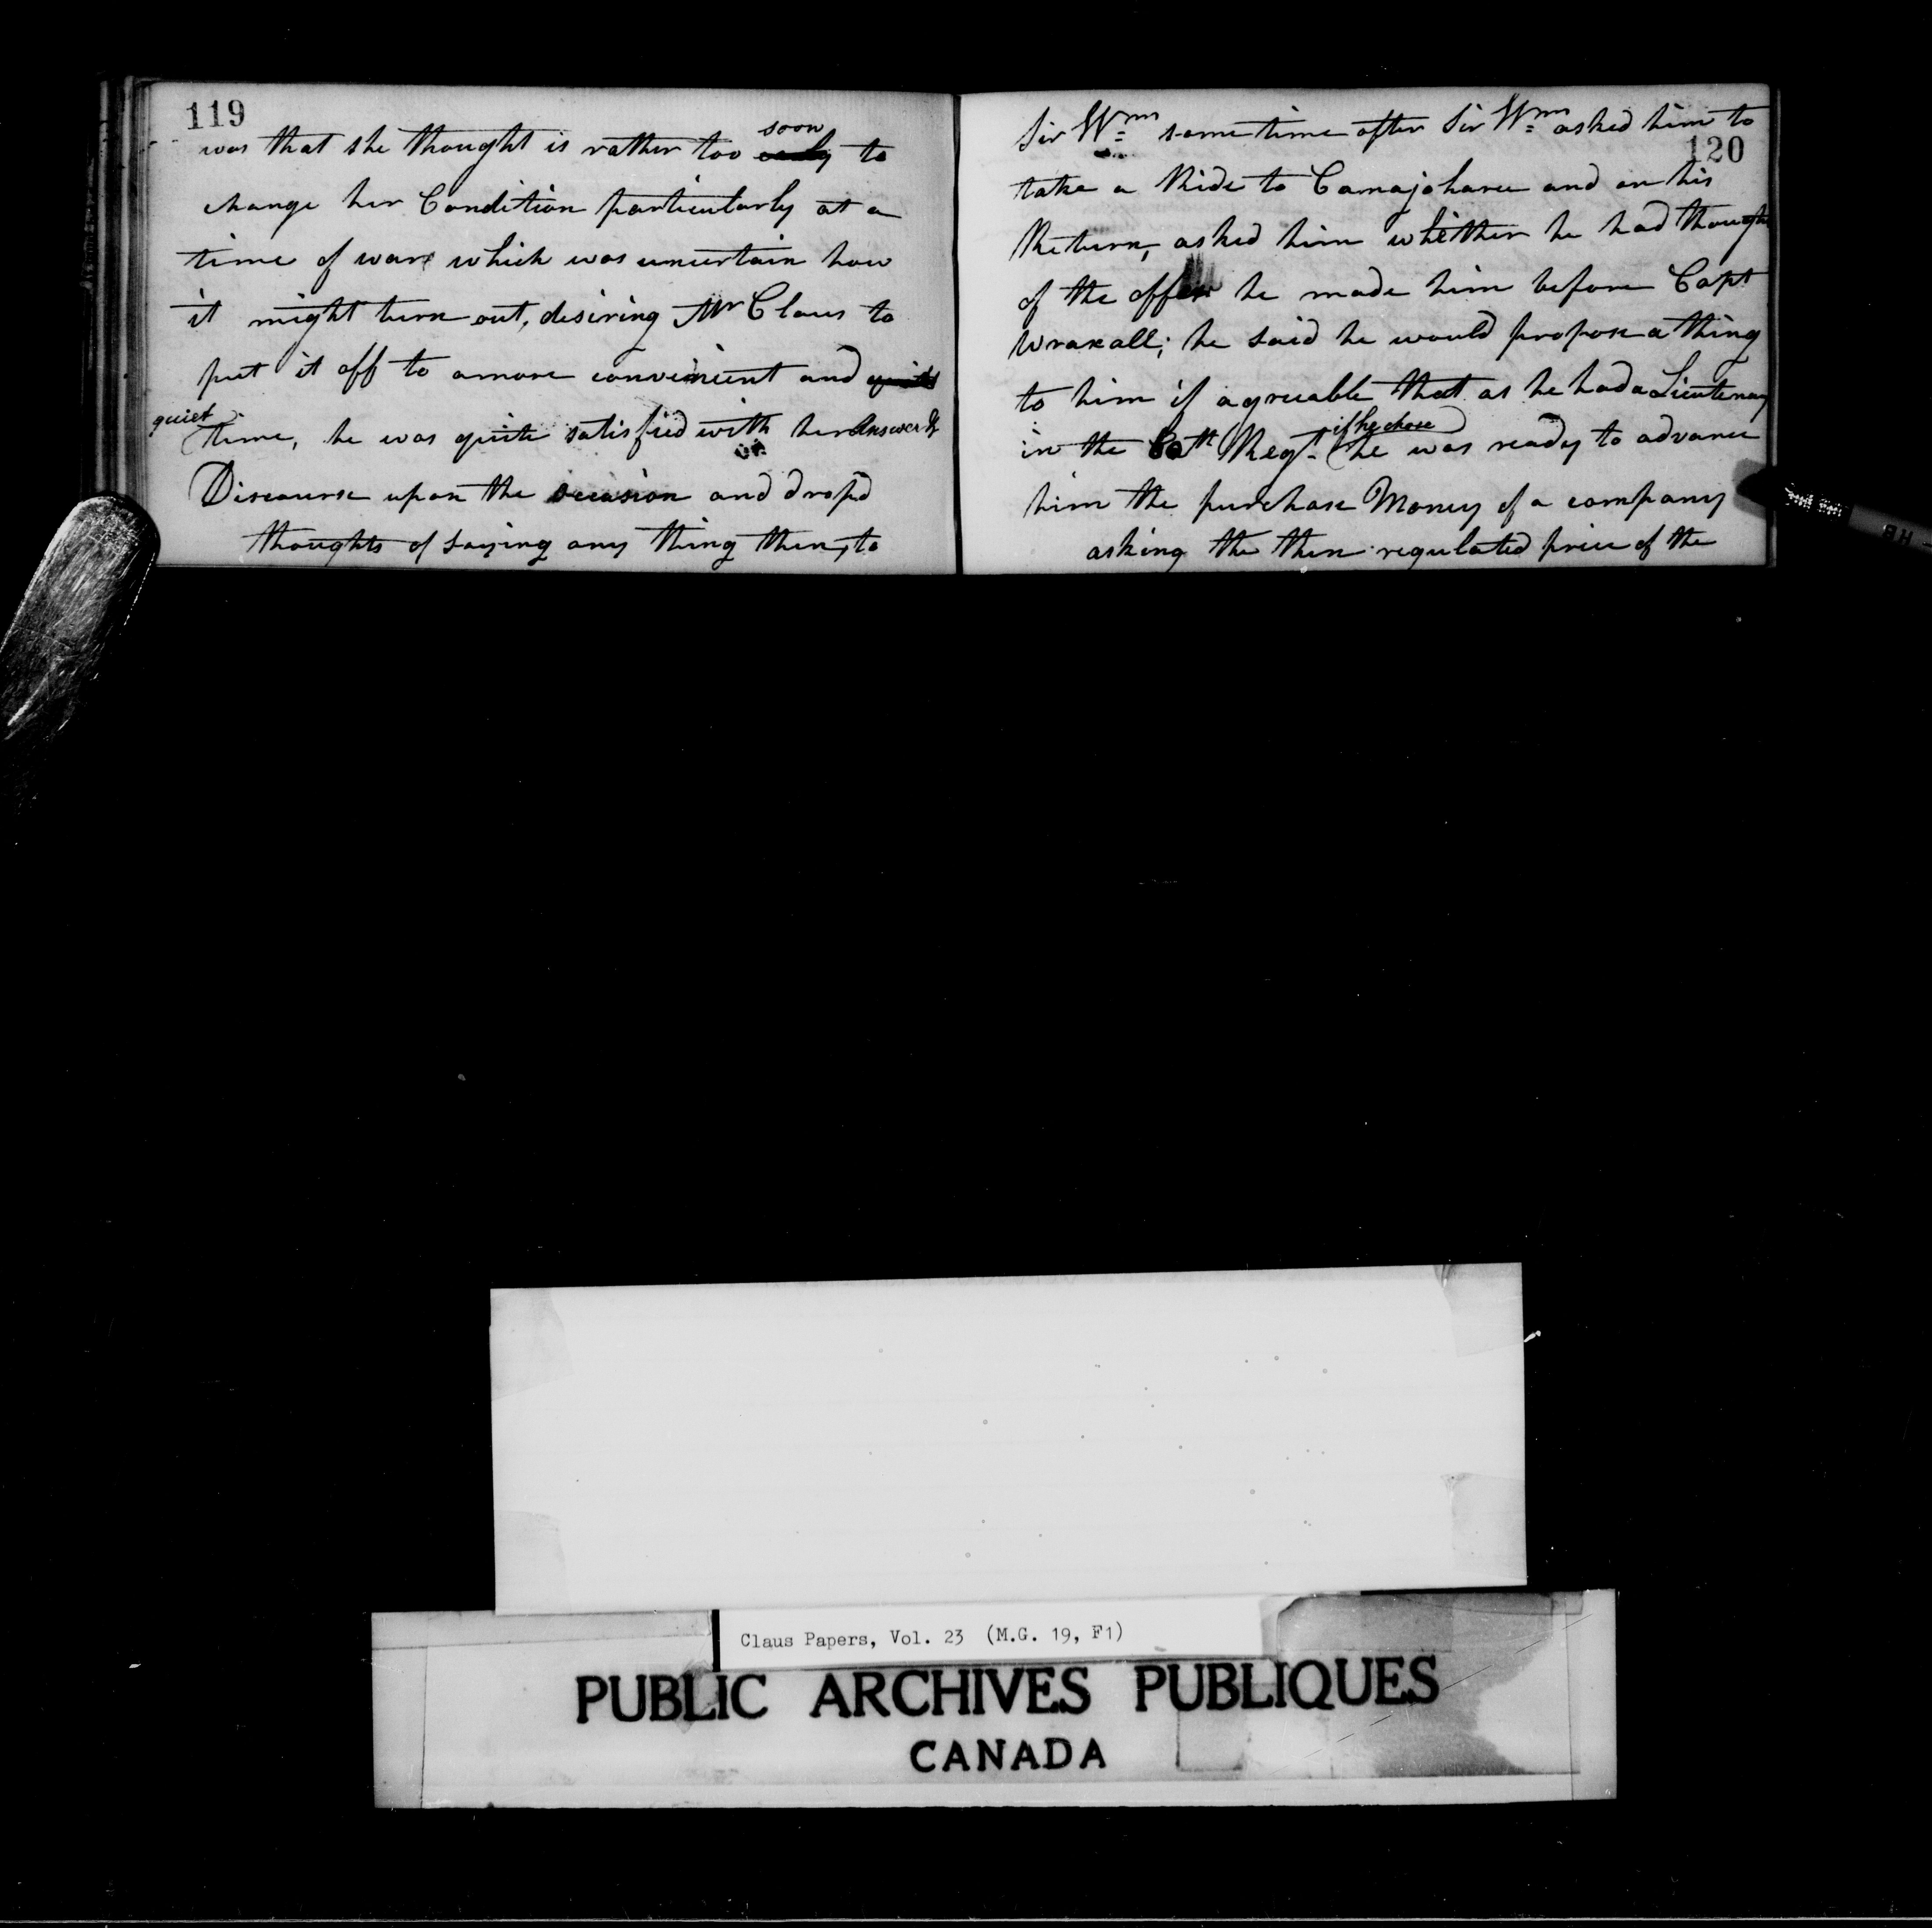 119
was that she thought is rather too soon early to
change her Condition particularly at a
time of war which was uncertain how
it might turn out, desiring Mr Claus to
put it off to a more convenient and quiet
quiet time, he was quite satisfied with her Answer &
Discourse upon the occasion and drop'd
thoughts of saying any thing then, to
120
Sir Wm sometime after Sir Wm asked him to
take a Ride to Canajoharee and on his
Return, asked him whether he had thought
of the offer he made him before Capt
Wraxall; he said he would propose a thing
to him if agreeable that as he had a Lieutenancy
in the 60th Regt. if he chose he was ready to advance
him the purchase Money of a company
asking the then regulated price of the
Claus Papers, Vol. 23 (M.G. 19, F1)
PUBLIC ARCHIVES PUBLIQUES
CANADA